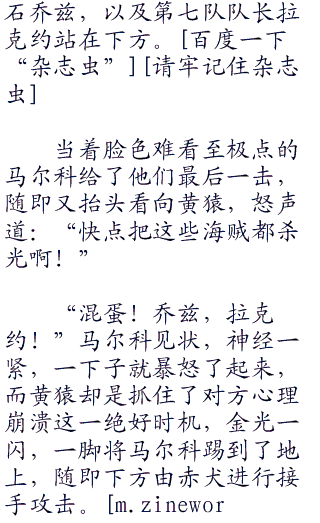 石乔兹，以及第七队队长拉
克约站在下方。[百度一下
“杂志虫”][请牢记住杂志
虫]
当着脸色难看至极点的
马尔科给了他们最后一击，
随即又抬头看向黄猿，怒声
道：“快点把这些海贼都杀
光啊！”
“混蛋！乔兹，拉克
约！”马尔科见状，神经一
紧，一下子就暴怒了起来，
而黄猿却是抓住了对方心理
崩溃这一绝好时机，金光一
闪，一脚将马尔科踢到了地
上，随即下方由赤犬进行接
手攻击。[m.zinewor